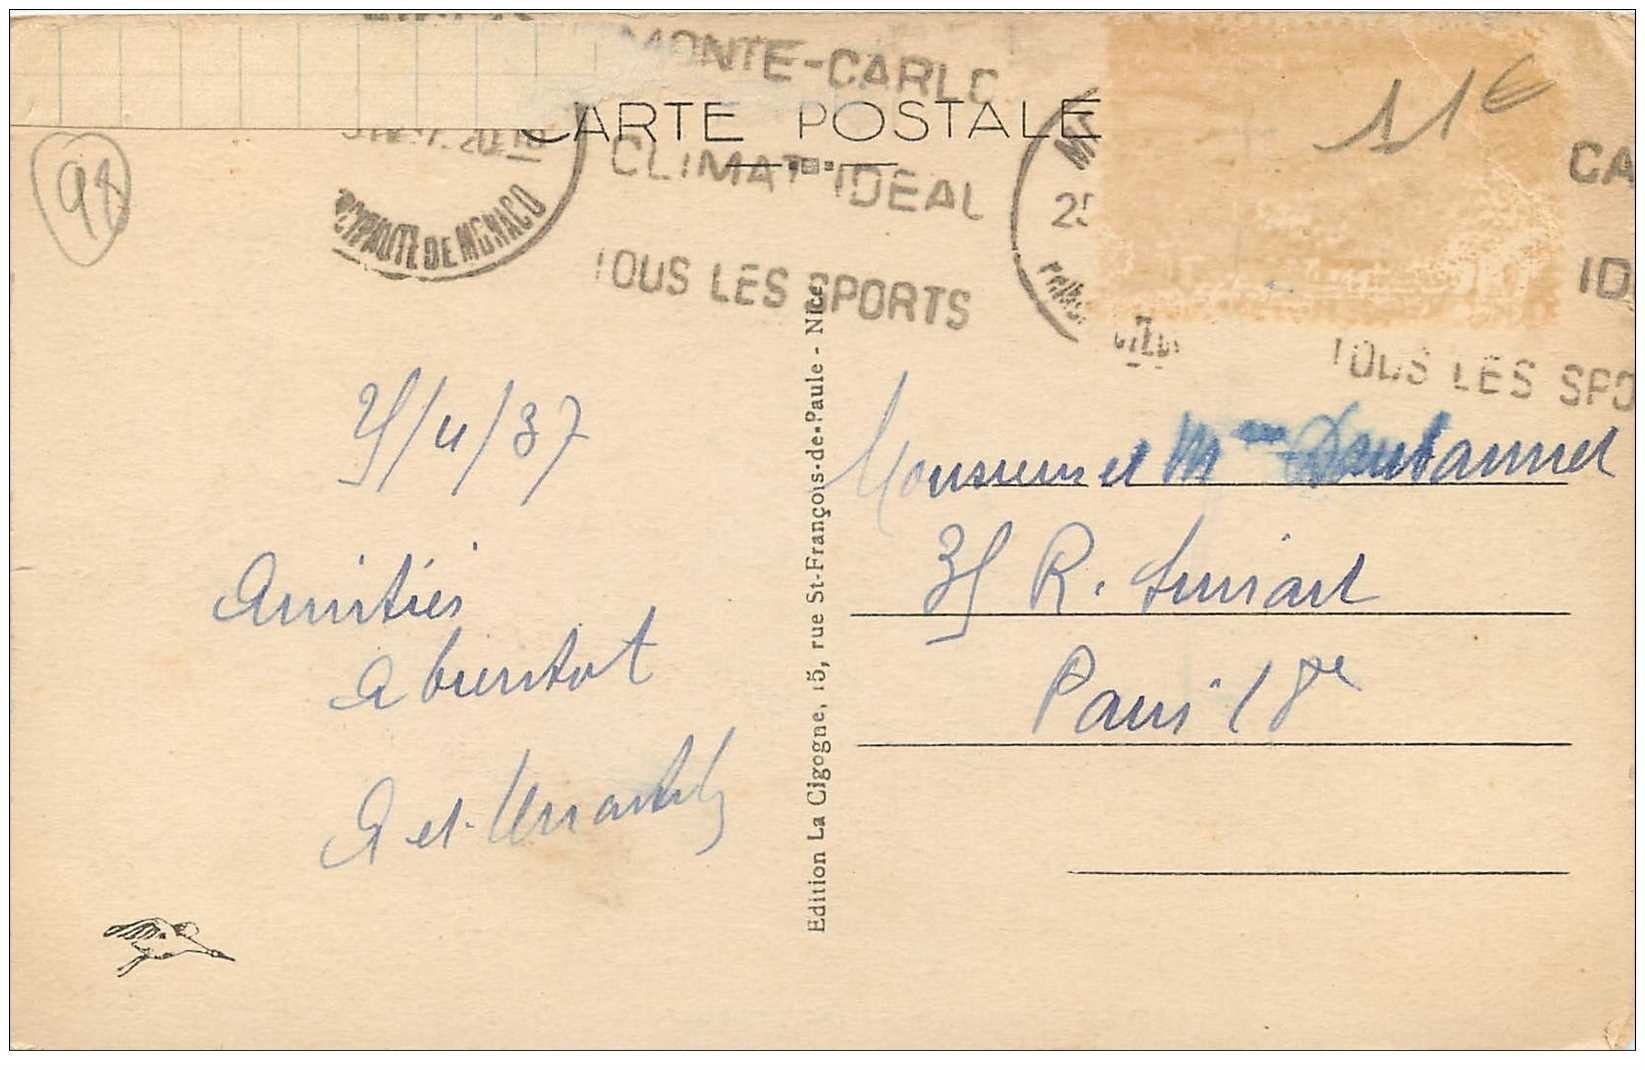 MONTE-CARLO
CARTE POSTALE
CLIMAT IDEAL
TOUS LES SPORTS
DE MONACO
25
11€
CA
ID
TOUS LES SPO
98
Edition La Cigogne, 15, rue St-François-de-Paule - Nice
/4/37
Amitiés
a bientot
A et
Monsieur et Mme
35 R. Simart
Paris 18e